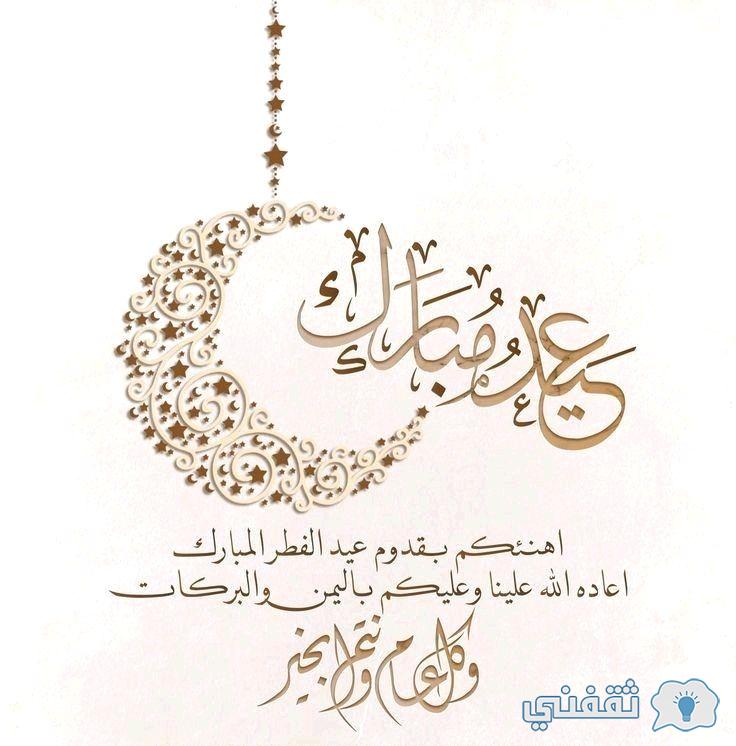 عيد مُبارك
اهنئكم بقدوم عيد الفطر المبارك
اعاده الله علينا وعليكم باليمن والبركات
وكل عام وأنتم بخير
ثقفني